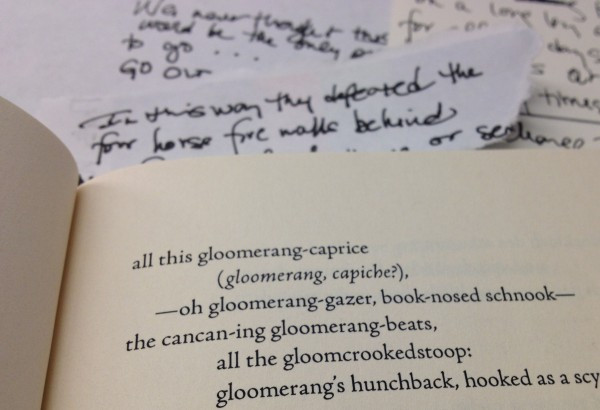 We never thought this
would be the only
to go . . .
GO OUT
a love
for
In this way they defeated the
four horse fire walls behind
or sentence
times
all this gloomerang-caprice
(gloomerang, capiche?),
—oh gloomerang-gazer, book-nosed schnook—
the cancan-ing gloomerang-beats,
all the gloomcrookedstoop:
gloomerang's hunchback, hooked as a scy